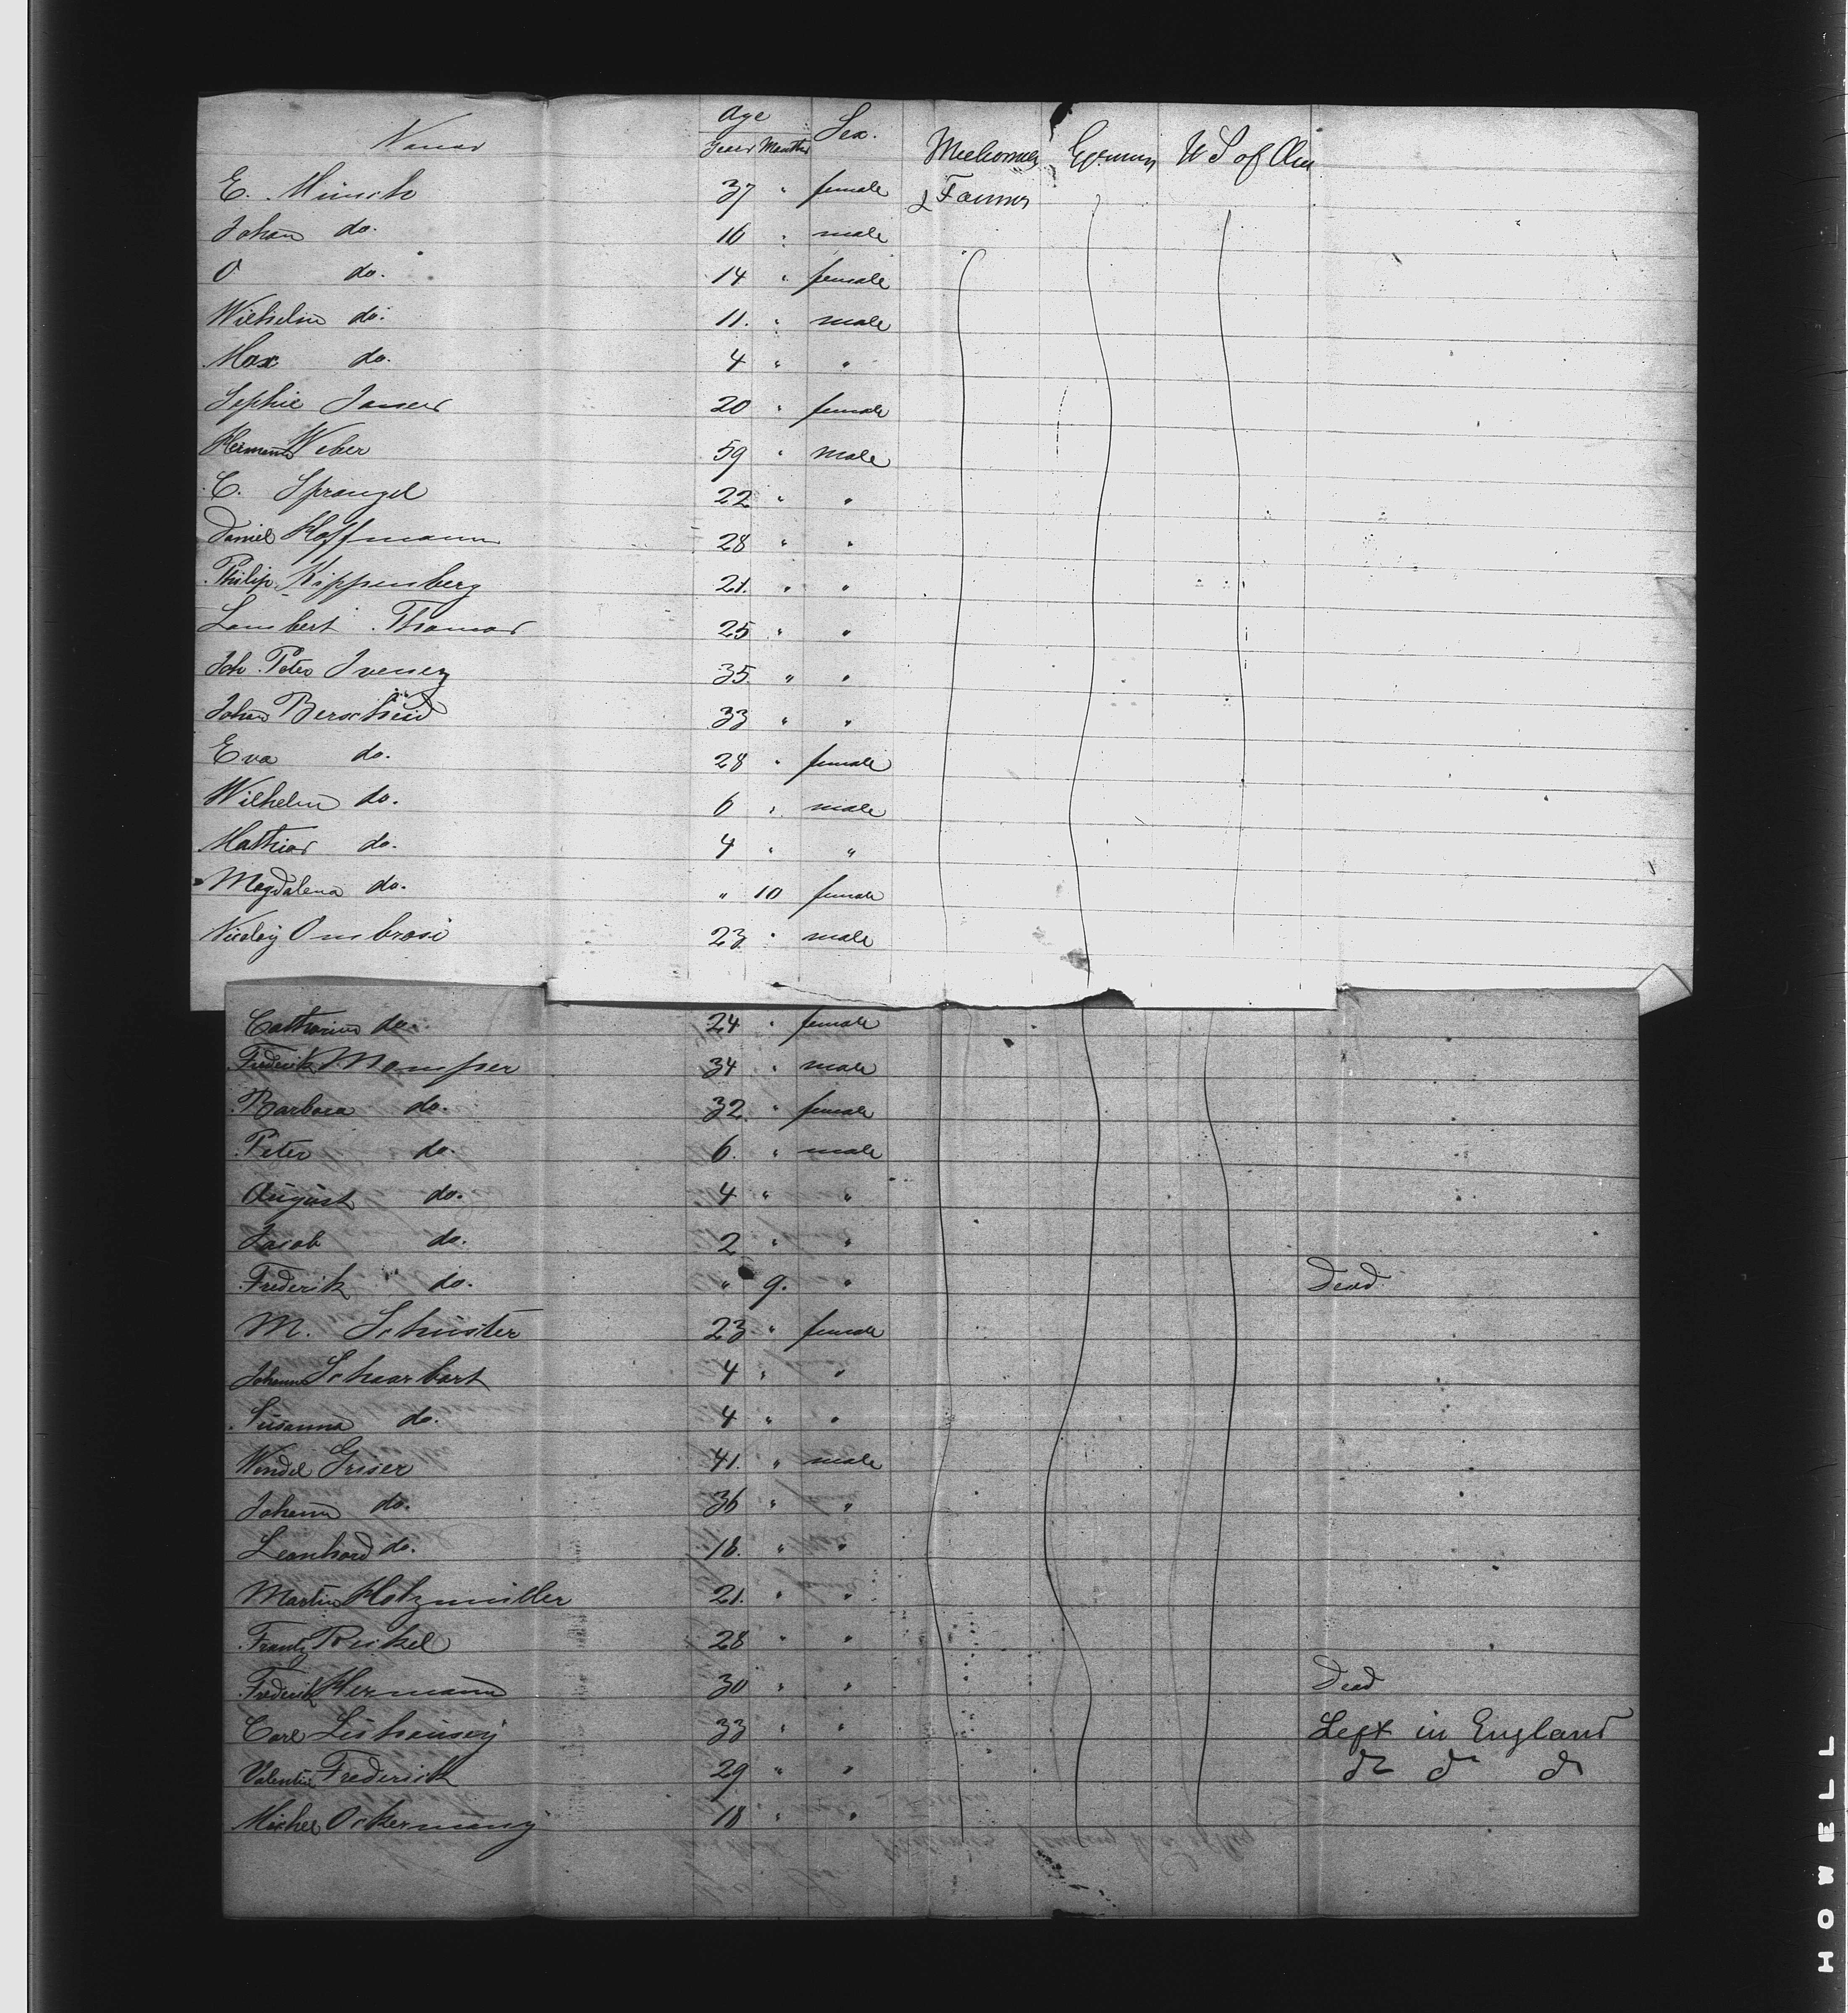 Age
Names Sex.
Years Months
Mechanics German U S of Am
E. Münsch 37 " female & Farmer
Johan do. 16 " male
O do. 14 " female
Wilhelm do. 11. " male
Max do. 4 " "
Sophie Janser 20 " female
Hermann Weber 59 " male
C. Sprangel 22 " "
Daniel Hoffmann 28 " "
Philip Kippenberg 21. " "
Lambert Thomas 25 " "
Joh. Peter 35. " "
Johan Berscheid 33 " "
Eva do. 28 " female
Wilhelm do. 6 " male
Mathias do. 4 " "
Magdalena do. " 10 female
Nicolay Ombrosi 23 " male
Catharina do. 24 " female
Frederik Momper 34 " male
Barbara do. 32 " female
Peter do. 6. " male
August do. 4 " "
Jacob do. 2 " "
Frederik do. " 9. " Dead.
M. Schuster 23 " female
Johanna Schaarbart 4 " "
Susanna do. 4 " "
Wendel Griser 41. " male
Johann do. 36 " "
Leonhard do. 18. " "
Martin Holzmüller 21. " "
Frantz 28 " "
Frederik Hermann 30 " " Dead
Carl 33 " " Left in England
Valentin Frederick 29 " " do do do
Michel Ockermany 18 " "
HOWELL